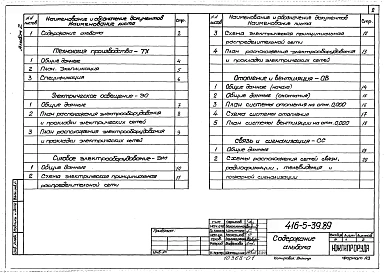 2
Альбом 2
№№ листов
Наименование и обозначение документов
Наименование листа
Стр.
1 Содержание альбома 2
Технология производства - ТХ
1 Общие данные 4
2 План. Экспликация 5
3 Спецификация 6
Электрическое освещение - ЭО
1 Общие данные 7
2 План расположения электрооборудования 8
и прокладки электрических сетей
3 План расположения электрооборудования 9
и прокладки электрических сетей
Силовое электрооборудование - ЭМ
1 Общие данные 10
2 Схема электрическая принципиальная 11
распределительной сети
Наименование и обозначение документов
Наименование листа
Стр.
3 Схема электрическая принципиальная 12
распределительной сети
4 План расположения электрооборудования 13
и прокладки электрических сетей
Отопление и вентиляция - ОВ
1 Общие данные (начало) 14
2 Общие данные (окончание) 15
3 План системы отопления на отм. 0.000 16
4 Схема системы отопления 17
5 План системы вентиляции на отм. 0.000 18
Связь и сигнализация - СС
1 Общие данные 19
2 Схемы расположения сетей связи, 20
радиофикации, телевидения и
пожарной сигнализации
Привязан
416-5-39.89
Содержание
альбома
Формат А3